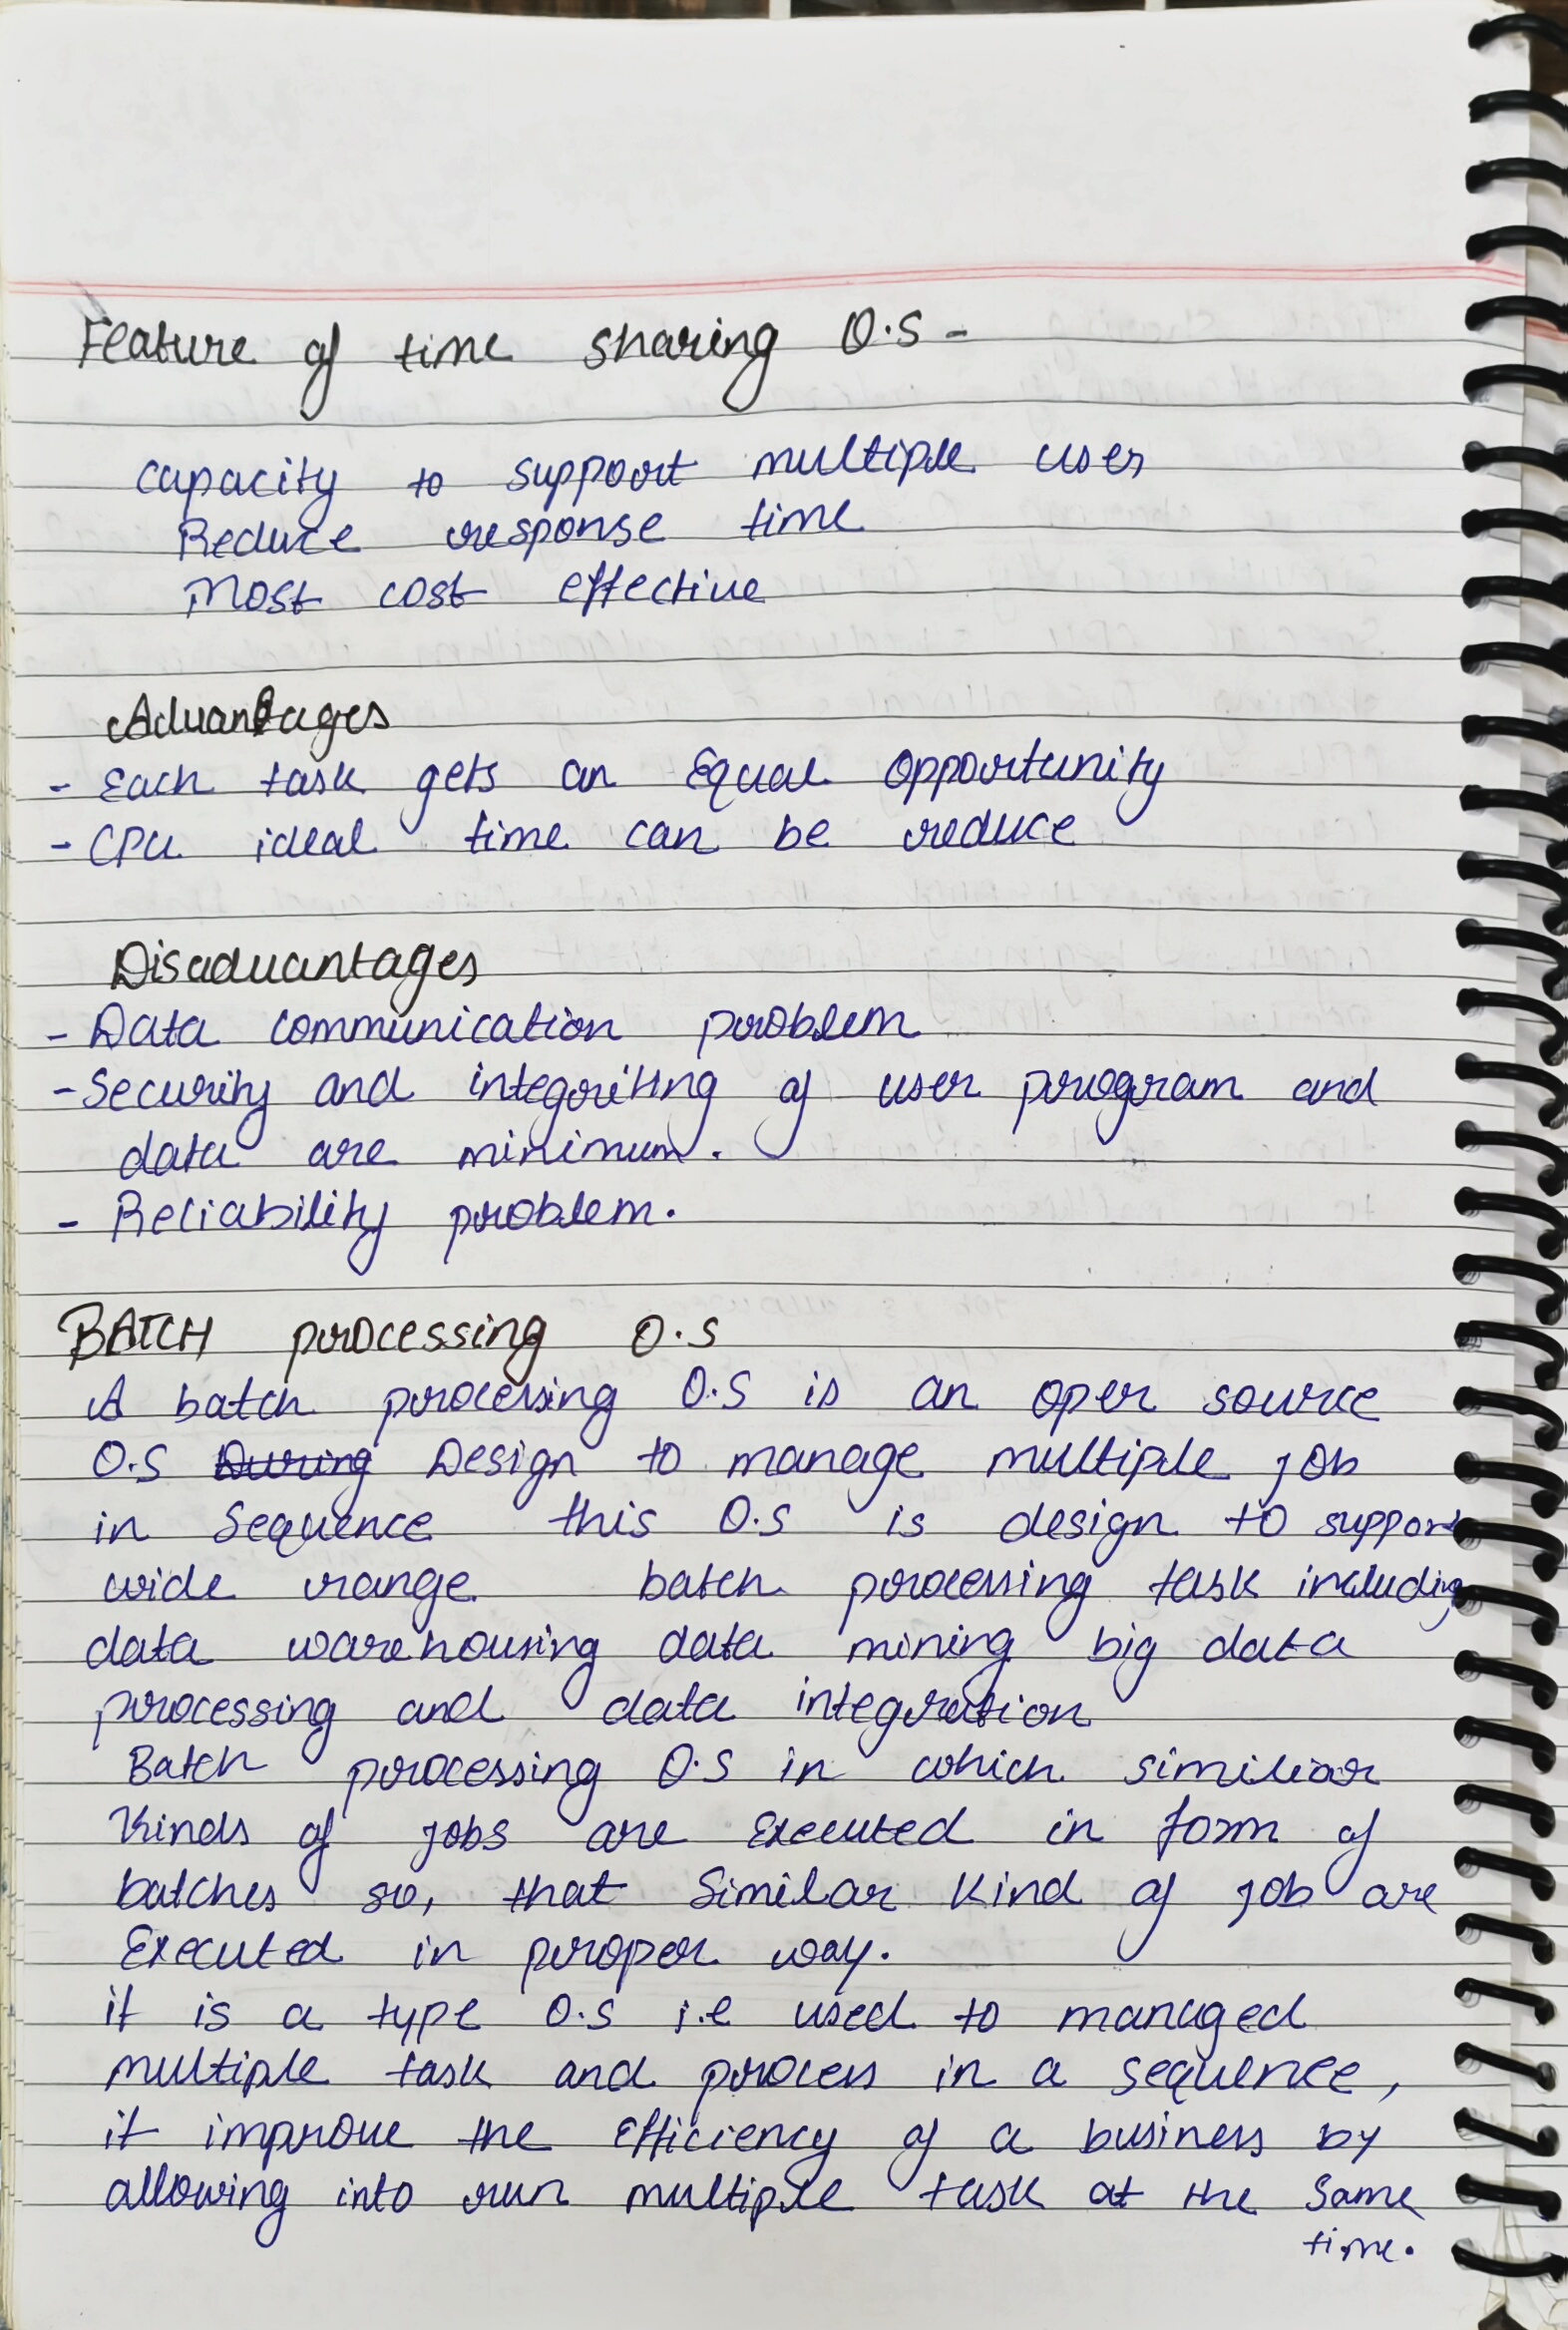 Feature of time sharing O.S -
capacity to support multiple user
Reduce response time
Most cost effective
Advantages
- Each task gets an Equal opportunity
- CPU ideal time can be reduce
Disadvantages
- Data communication problem
- Security and integriting of user program and
data are minimum.
- Reliability problem.
BATCH processing O.S
A batch processing O.S is an oper source
O.S During Design to manage multiple job
in Sequence this O.S is design to support
wide range batch processing task including
data warehousing data mining big data
processing and data integration
Batch processing O.S in which similiar
Kinds of jobs are Executed in form of
batches so, that Similar Kind of job are
Executed in proper way.
it is a type O.S i.e used to managed
multiple task and process in a sequence,
it improve the Efficiency of a business by
allowing into run multiple task at the same
time.